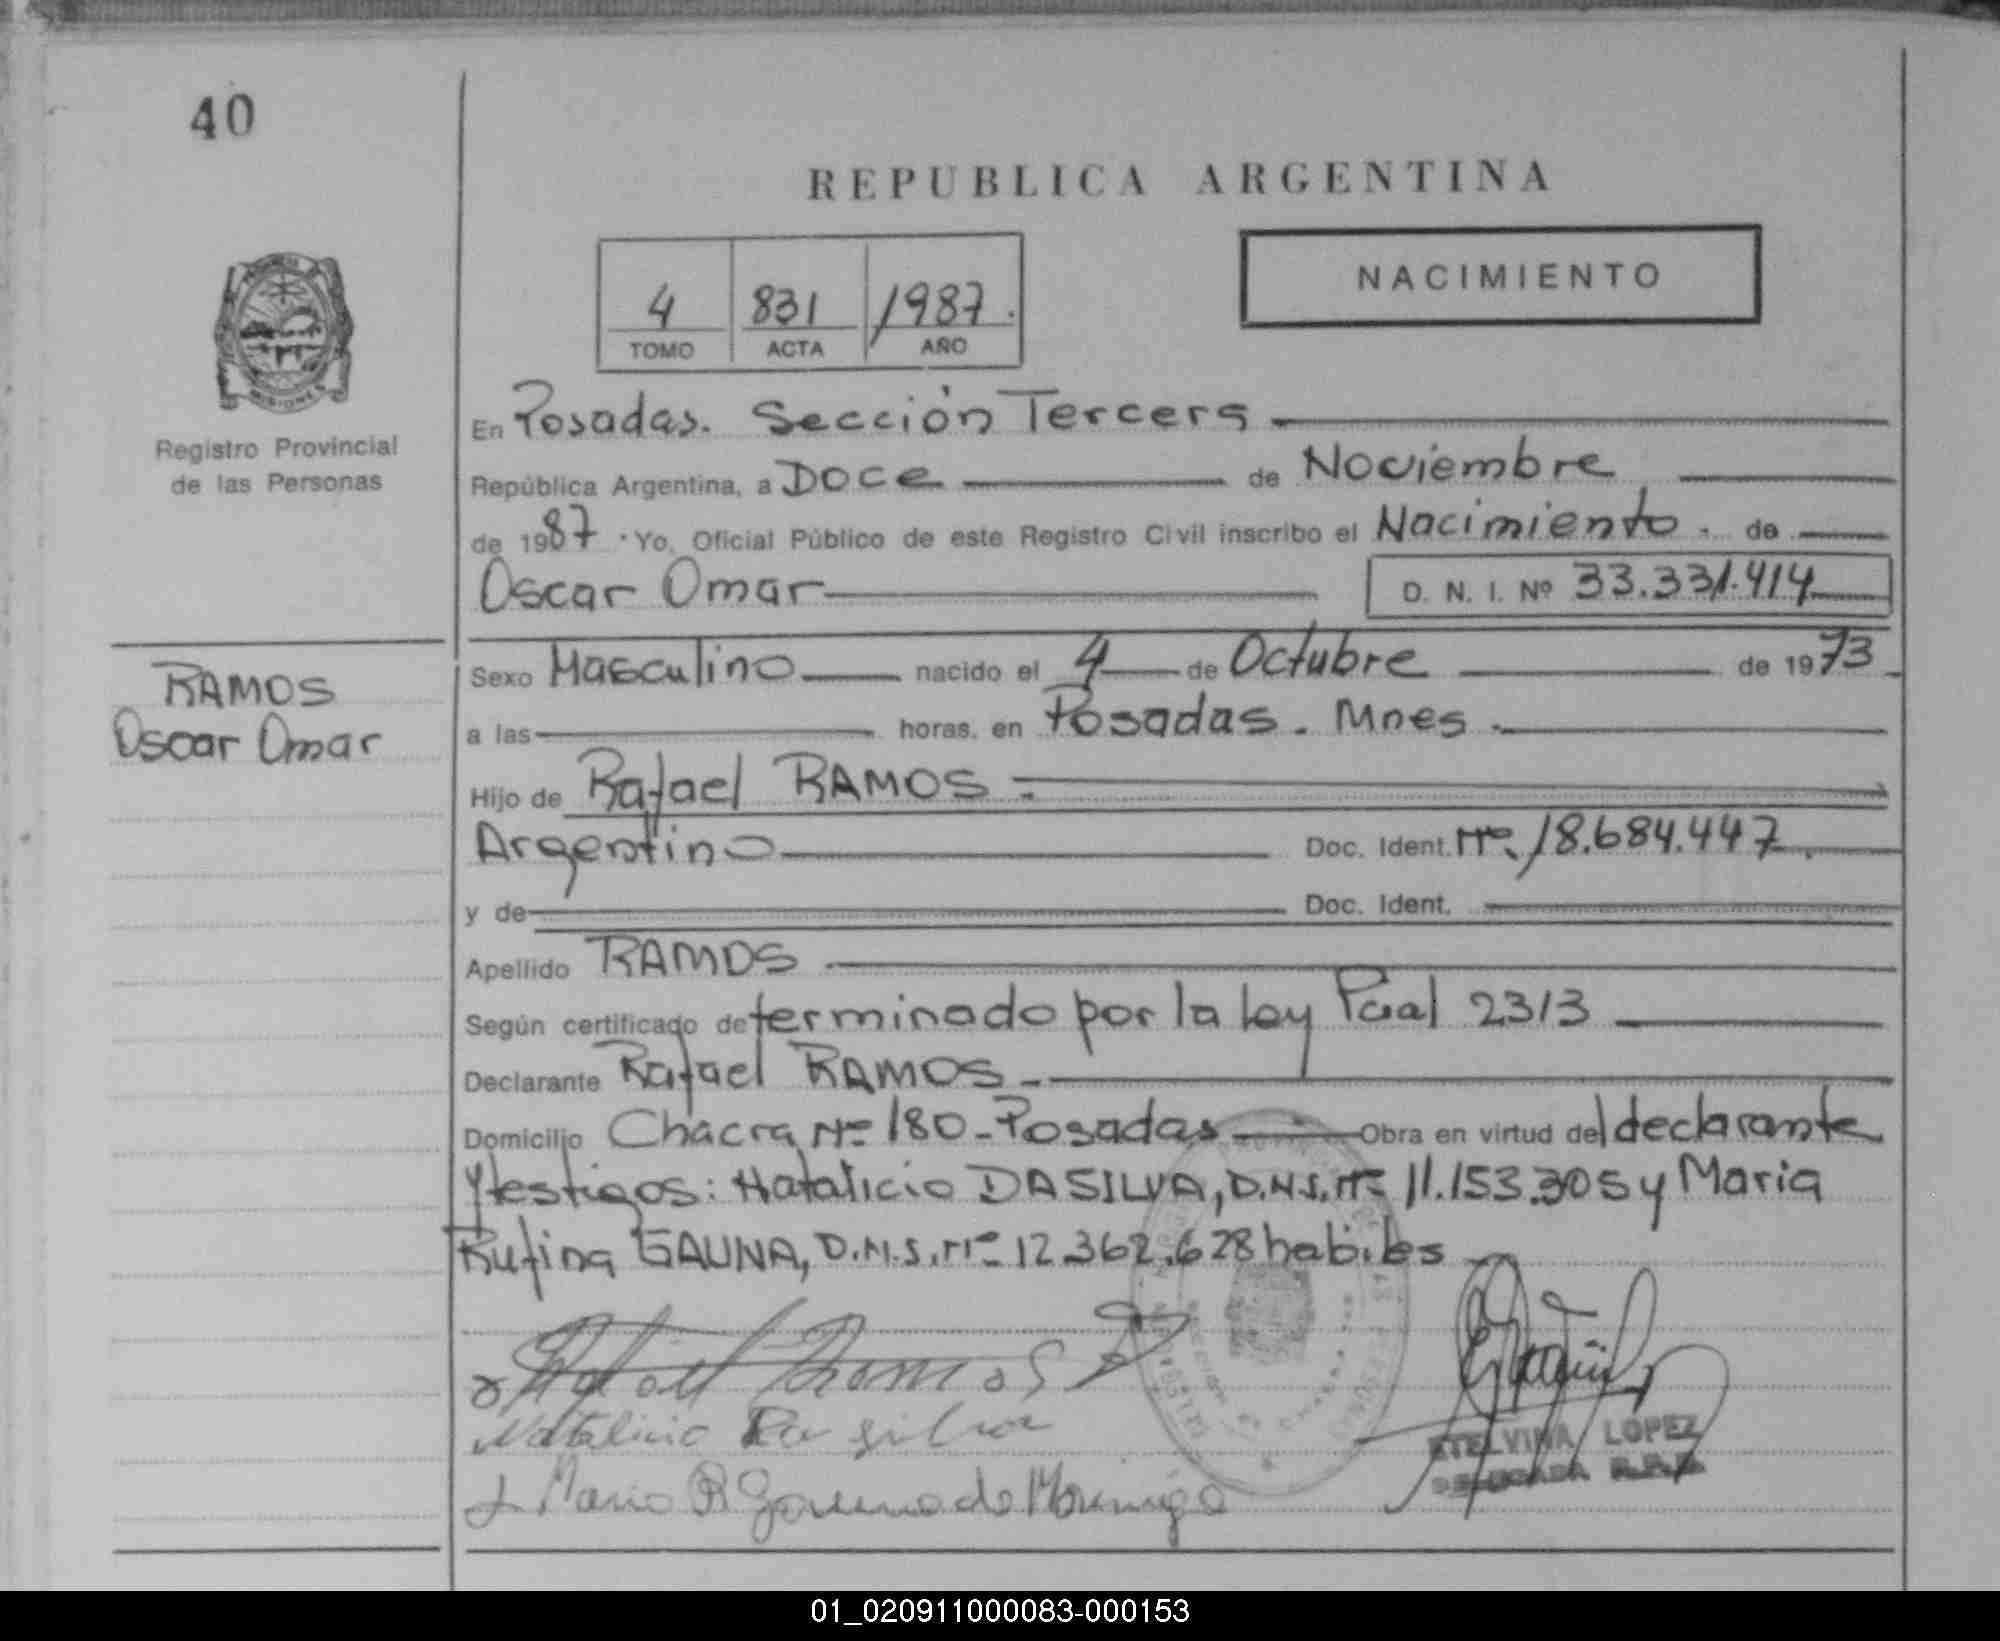 40
REPUBLICA ARGENTINA
4 831 1987.
TOMO ACTA AÑO
NACIMIENTO
MISIONES
Registro Provincial
de las Personas
En Posadas. Sección Tercera
República Argentina, a Doce de Noviembre
de 1987. Yo, Oficial Público de este Registro Civil inscribo el Nacimiento. de
Oscar Omar D. N. I. Nº 33.331.414
RAMOS
Oscar Omar
Sexo Masculino nacido el 4 de Octubre de 1973
a las horas, en Posadas. Mnes.
Hijo de Rafael RAMOS.
Argentino Doc. Ident. Nº. 18.684.447.
y de Doc. Ident.
Apellido RAMOS
Según certificado determinado por la ley Pcial 2313
Declarante Rafael RAMOS.
Domicilio Chacra Nº 180-Posadas Obra en virtud del declarante
y testigos: Natalicio DASILVA, D.N.I. Nº 11.153.305 y Maria
Rufina GAUNA, D.N.I. Nº 12.362.628 habiles
Rafael Ramos
Natalicio Da silva
Maria R
ETELVINA LOPEZ
DELEGADA R.P.P.
01_020911000083-000153